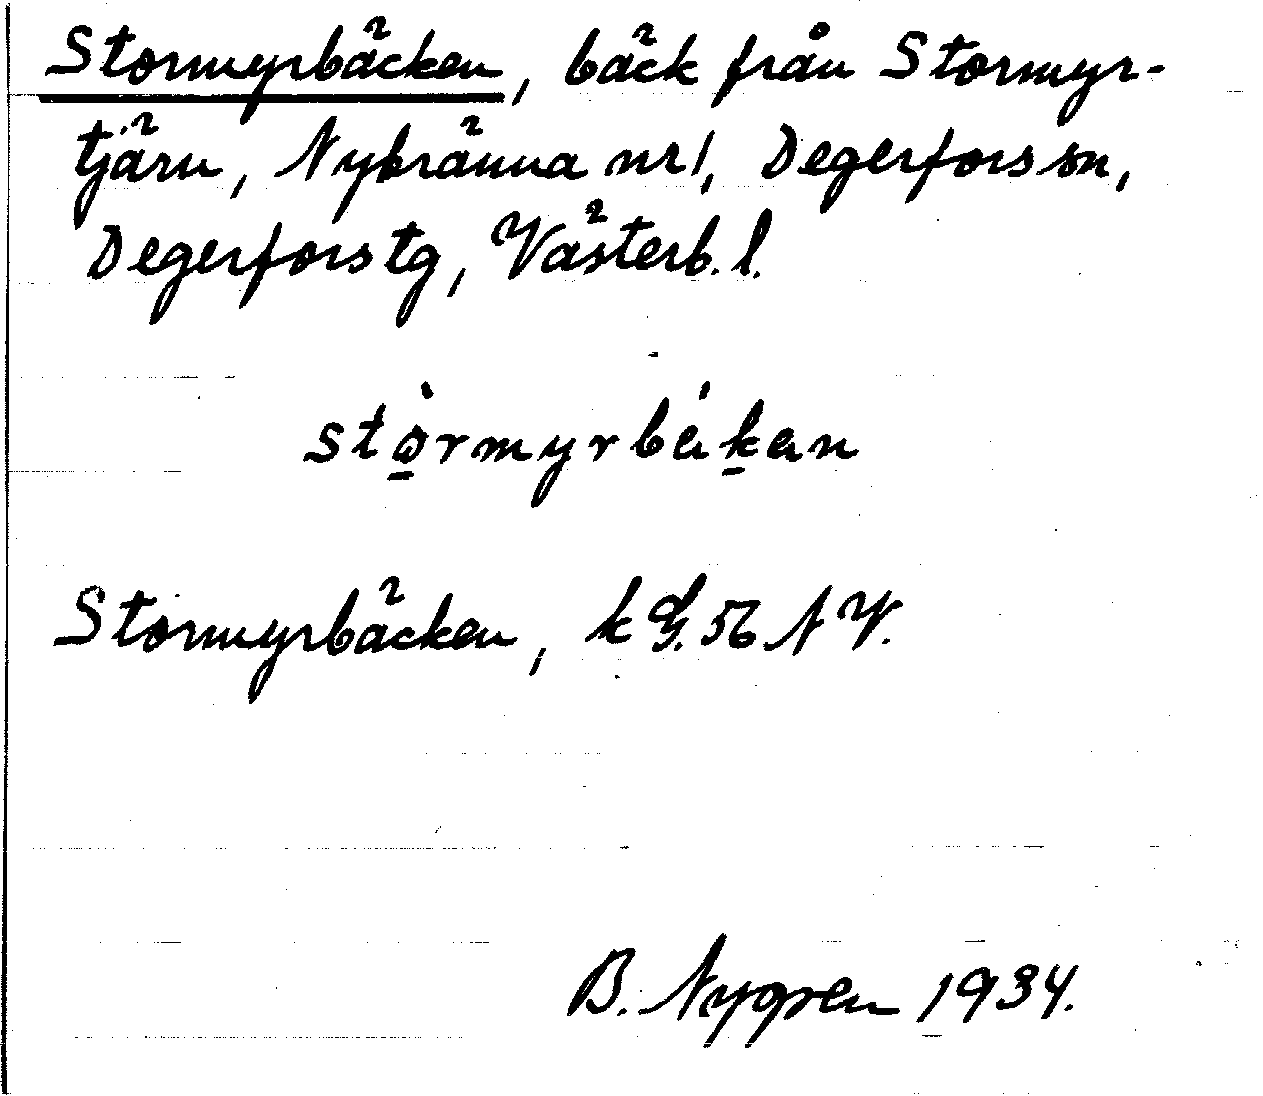 Stormyrbäcken, bäck från Stormyr-
tjärn, Nybränna nr 1, Degerfors sn,
Degerfors tg, Västerb. l.
stò̱rmyrbék̠en
Stormyrbäcken, k G. 56 NV.
B. Nygren 1934.